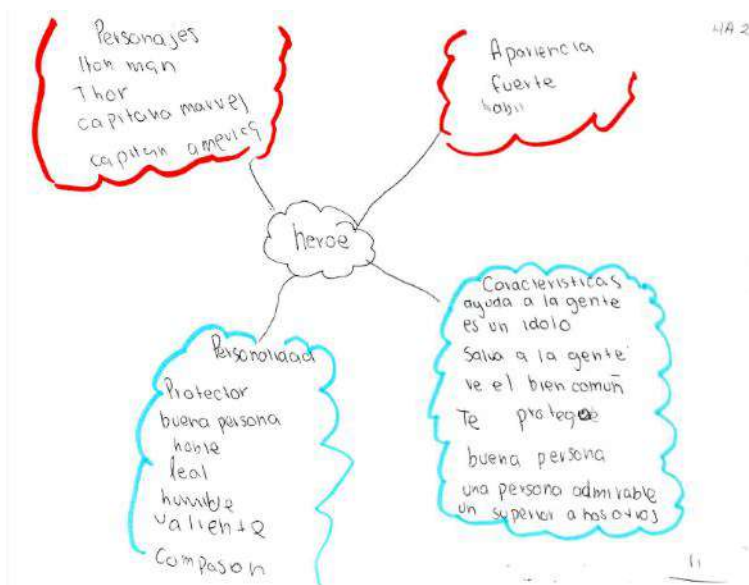 Personajes
Iron man
Thor
capitana marvel
capitán america
Apariencia
fuerte
habil
4A 2
heroe
Personalidad
Protector
buena persona
noble
leal
humilde
valiente
Compasion
Caracteristicas
ayuda a la gente
es un idolo
salva a la gente
ve el bien comun
Te protege
buena persona
una persona admirable
un superior a nosotros